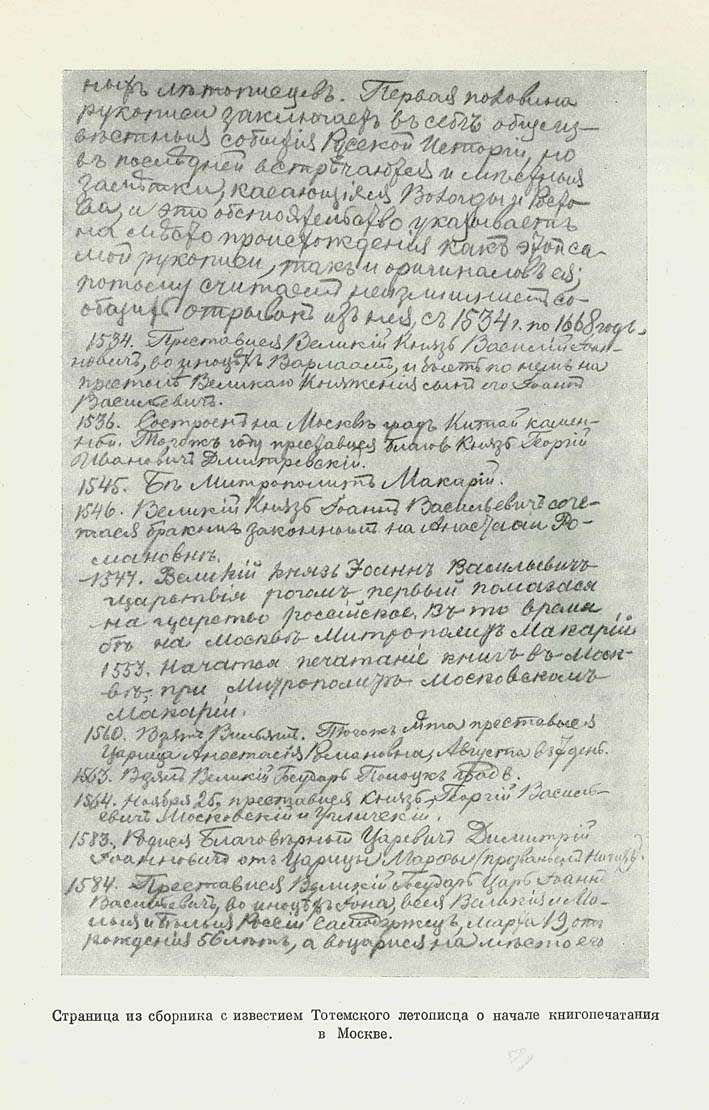 ныхъ лѣтописцевъ. Первая половина
рукописи заключаетъ въ себѣ общеиз-
вѣстныя событія Русской Исторіи, но
въ послѣдней встрѣчаются и мѣстныя
замѣтки, касающіяся Вологды и
и это обстоятельство указываетъ
на мѣсто происхожденія какъ этой са-
мой рукописи, такъ и оригиналовъ ея;
потому считаемъ неизлишнимъ со-
общить отрывокъ изъ нея, съ 1534 г. по 1668 годъ.
1534. Преставися Великій Князь Василій Іоан-
новичъ, во иноцѣхъ Варлаамъ, и бысть по немъ на
престолѣ Великаго Княженія сынъ его Іоаннъ
Васильевичъ.
1536. Состроенъ на Москвѣ градъ Китай камен-
ной. Тогожъ году преставися благов. Князь Георгій
Ивановичъ Дмитревскій.
1545. Бѣ Митрополитъ Макарій.
1546. Великій Князь Іоаннъ Васильевичъ соче-
тася бракомъ законнымъ на Анастасіи Ро-
мановнѣ.
1547. Великій князь Іоаннъ Васильевичъ
царствія рогомъ первый помазася
на царство россійское. Въ то время
бѣ на Москвѣ Митрополитъ Макарій.
1553. Начатся печатаніе книгъ въ Моск-
вѣ, при Митрополитѣ Московскомъ
Макаріи.
1560. Взятъ Вильянъ. Тогожъ лѣта преставися
Царица Анастасія Романовна, Августа въ 7 день.
1563. Взялъ Великій Государь Полоцкъ градъ.
1564. Ноября 25, преставися Князь Георгій Василь-
евичъ Московскій и Угличскій.
1583. Родися Благовѣрный Царевичъ Димитрій
Іоанновичъ отъ Царицы Марѳы,
1584. Преставися Великій Государь Царь Іоаннъ
Васильевичъ, во иноцѣхъ Іона, всея Великія и Ма-
лыя и Бѣлыя Россіи Самодержецъ, Марта 19, отъ
рожденія 56 лѣтъ, а воцарися на мѣсто его
Страница из сборника с известием Тотемского летописца о начале книгопечатания
в Москве.